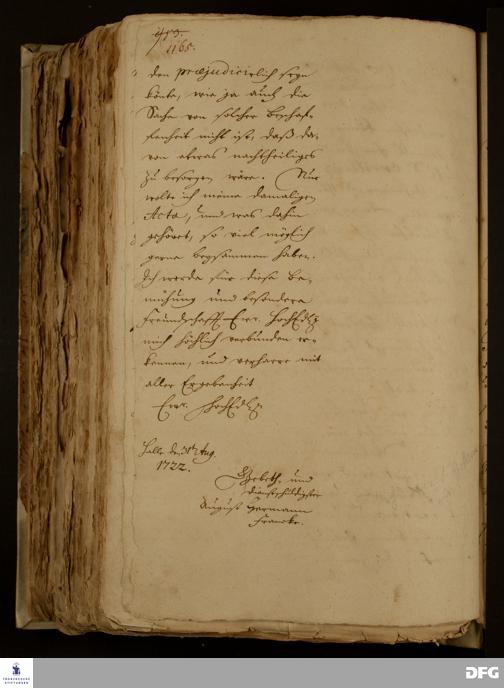 1165.
den præjudicirlich seyn
könte, wie ja auch die
Sache von solcher Beschaf-
fenheit nicht ist, daß da-
von etwas nachtheiliges
zu besorgen wäre. Nur
wolte ich meine damaligen
Acta, und was dahin
gehöret, so viel möglich
gerne beysammen haben.
Ich werde für diese Be-
mühung und besondere
Freundschafft Ew. HochEdl
mich höchlich verbunden er-
kennen, und verharre mit
aller Ergebenheit
Ew. HochEdl
Halle den Aug.
1722.
Gebeth- und
dienstschuldigster
August Hermann
Francke.
FRANCKESCHE
STIFTUNGEN
DFG